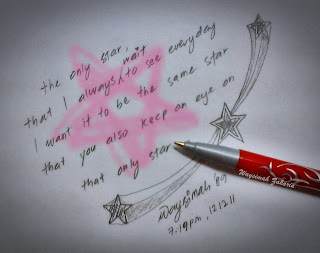 the only star,
that I always wait to see everyday
I want it to be the same star
that you also keep an eye on
that only star
Waysimah '89
7.19pm, 12.12.11
Waysimah Zakaria